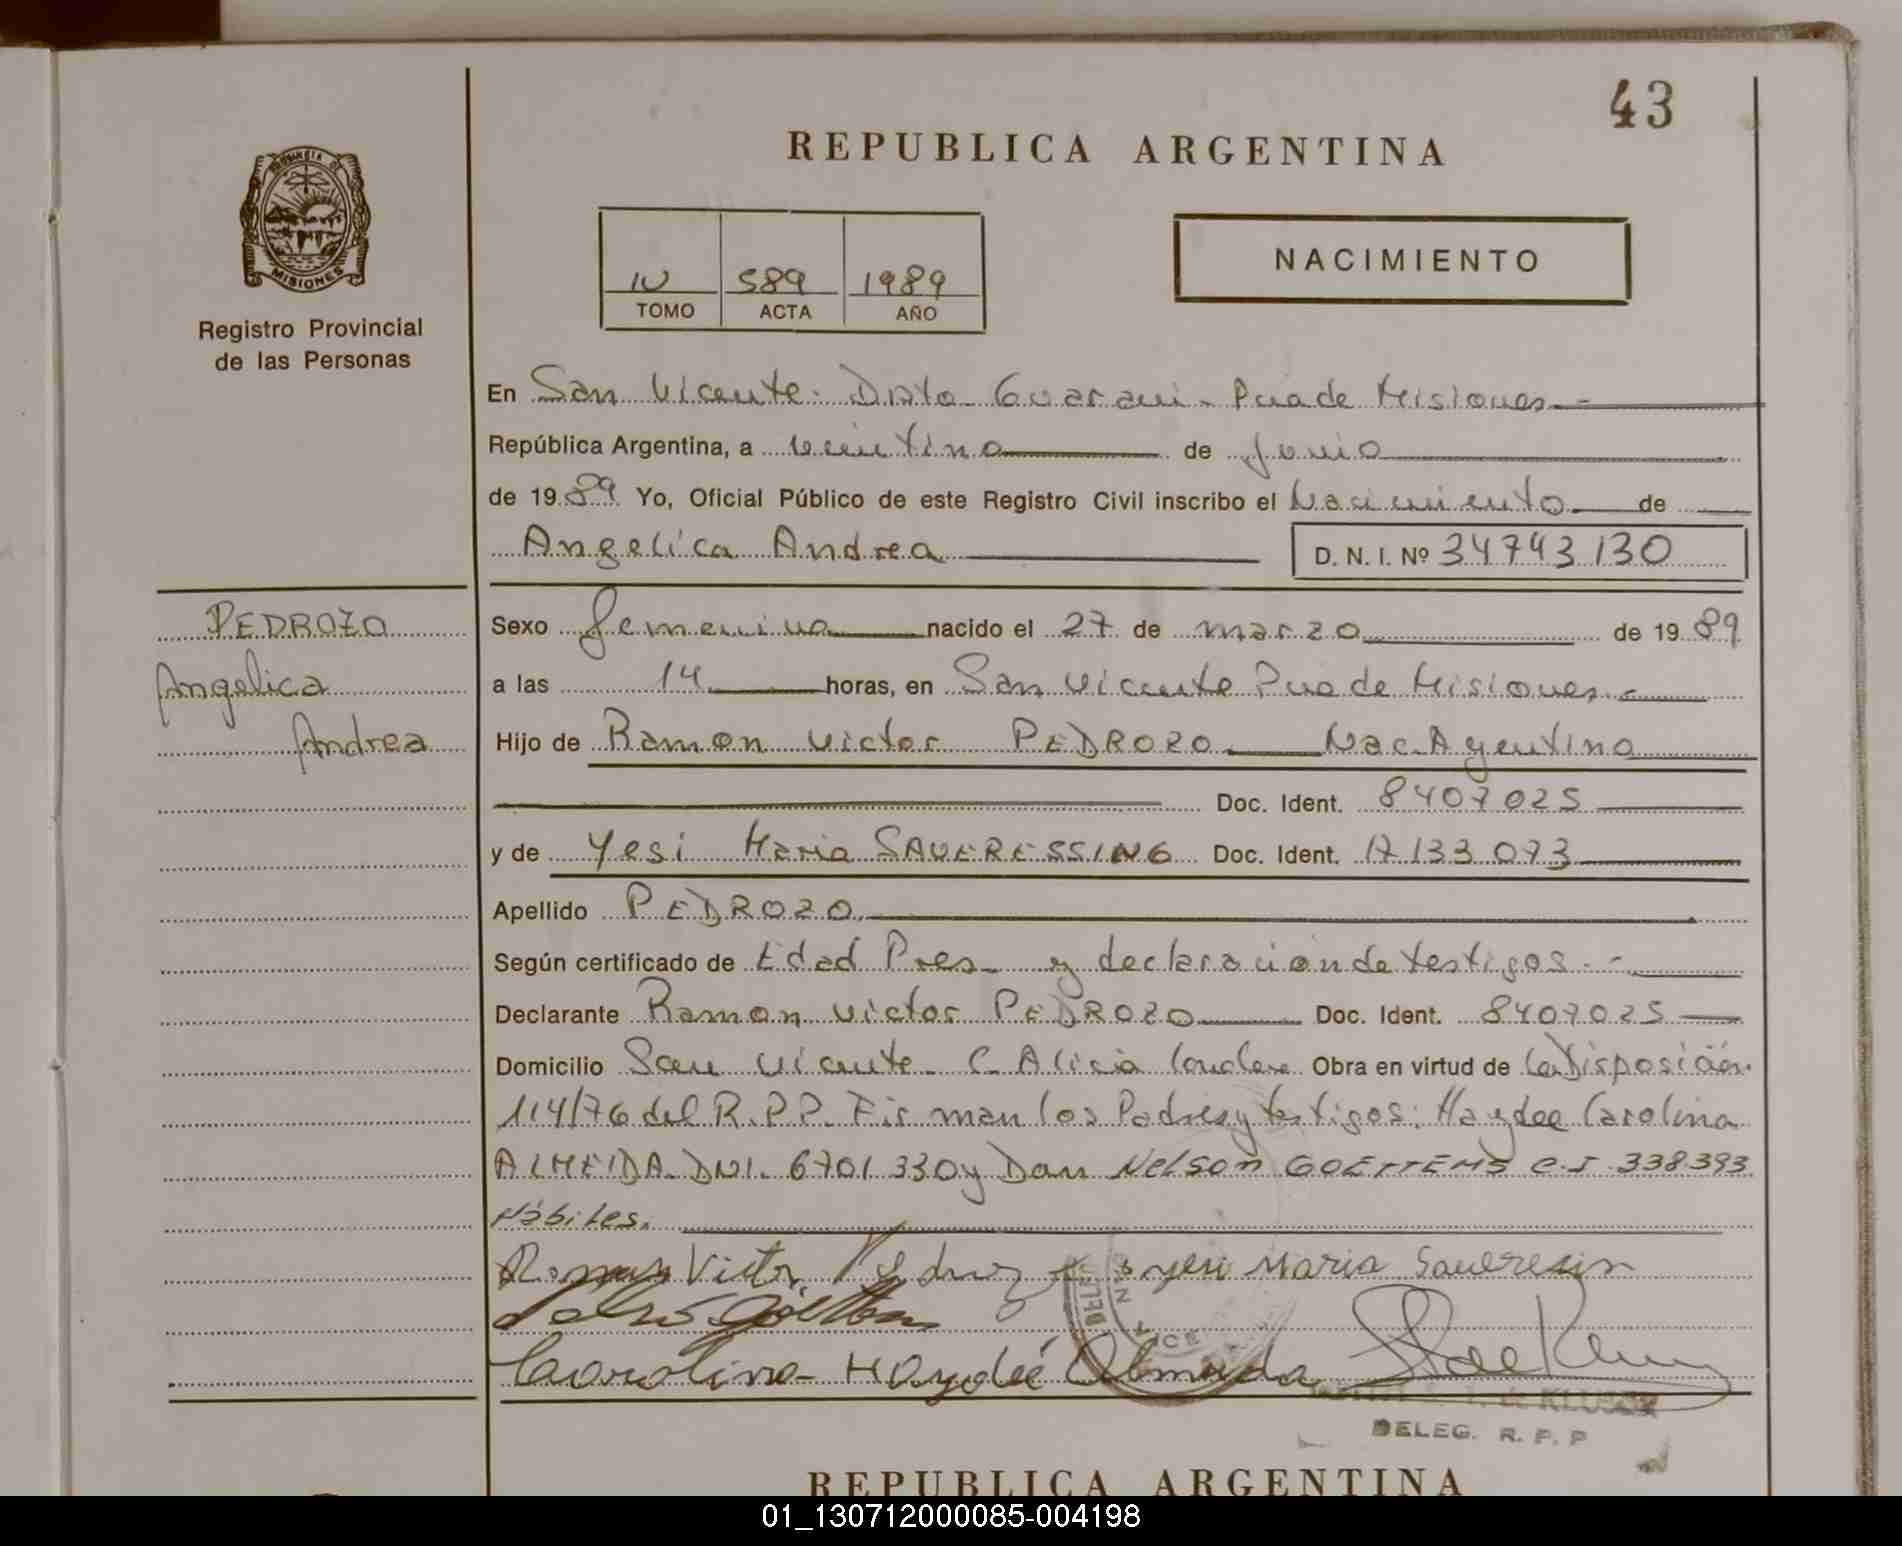 43
REPUBLICA ARGENTINA
PROVINCIA DE
MISIONES
Registro Provincial
de las Personas
IV 589 1989
TOMO ACTA AÑO
NACIMIENTO
En San Vicente. Dpto. Guarani. Pcia de Misiones.-
República Argentina, a veintino de Junio
de 1989 Yo, Oficial Público de este Registro Civil inscribo el Nacimiento de
Angelica Andrea D. N. I. Nº 34743130
PEDROZO
Angelica
Andrea
Sexo femenino nacido el 27 de marzo de 1989
a las 14 horas, en San Vicente Pcia de Misiones.-
Hijo de Ramon Victor PEDROZO Nac. Argentino
Doc. Ident. 8407025
y de Yesi Maria SAUERESSING Doc. Ident. 17133073
Apellido PEDROZO
Según certificado de Edad Pres. y declaración de testigos.-
Declarante Ramon Victor PEDROZO Doc. Ident. 8407025
Domicilio San Vicente. C. Alicia Obra en virtud de la Disposición
114/76 del R.P.P. Firman los Padres y testigos: Haydee Carolina
ALMEIDA. DNI. 6701330 y Don Nelson GOETTEMS C.I. 338.393
Hábiles.
Ramon Victor Pedrozo yesi Maria Saueresin
Carolina Haydeé Almeida
de KLUSOV
DELEG. R. P. P
REPUBLICA ARGENTINA
01_130712000085-004198